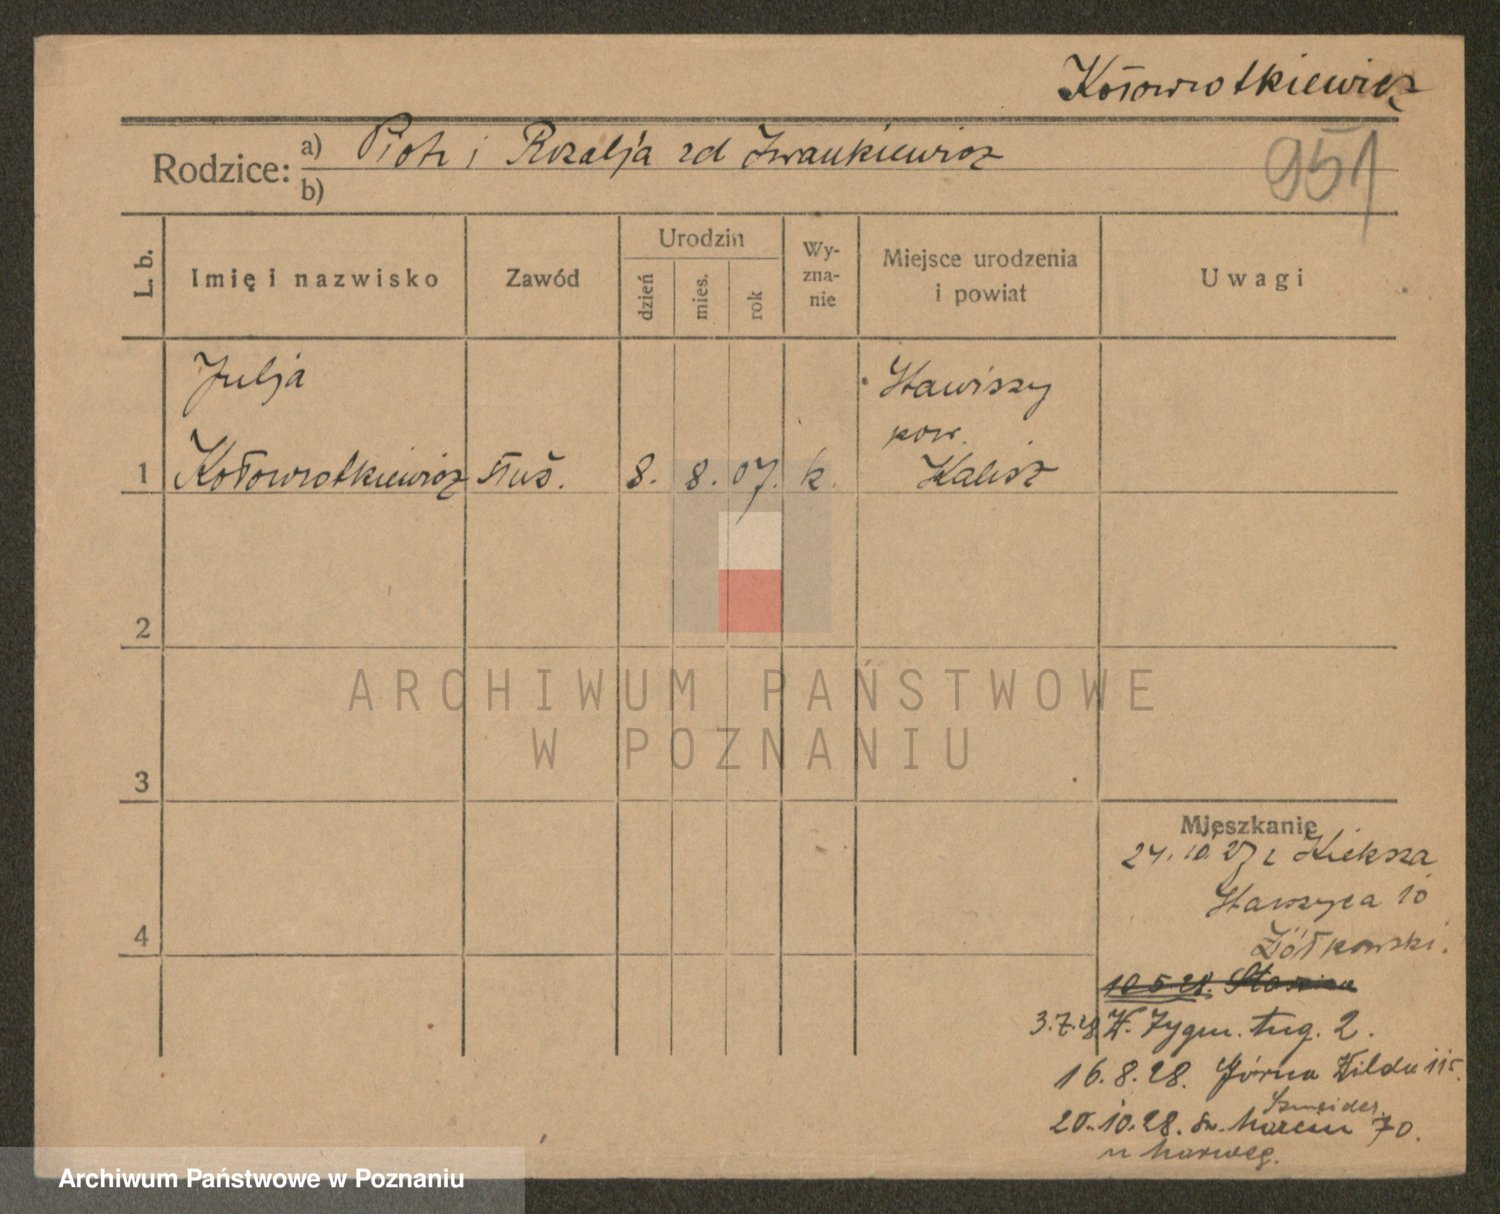 Kołowrotkiewicz
951
Rodzice: a) Piotr i Rozalja zd Iwankiewicz
b)
L. b. Imię i nazwisko Zawód Urodzin dzień mies. rok Wyznanie Miejsce urodzenia i powiat Uwagi
Julja Stawiszy
pow.
1 Kołowrotkiewicz służ. 8. 8. 07. k. Kalisz
2
ARCHIWUM PAŃSTWOWE
W POZNANIU
3
Mieszkanie
24.10.27 z Kiekrza
Staszyca 10
4 Żółkowski.
10.5.28.
3.7.28. W. Zygm. Aug. 2.
16.8.28. Górna Wilda 115.
20.10.28. św. Marcin 70.
Archiwum Państwowe w Poznaniu